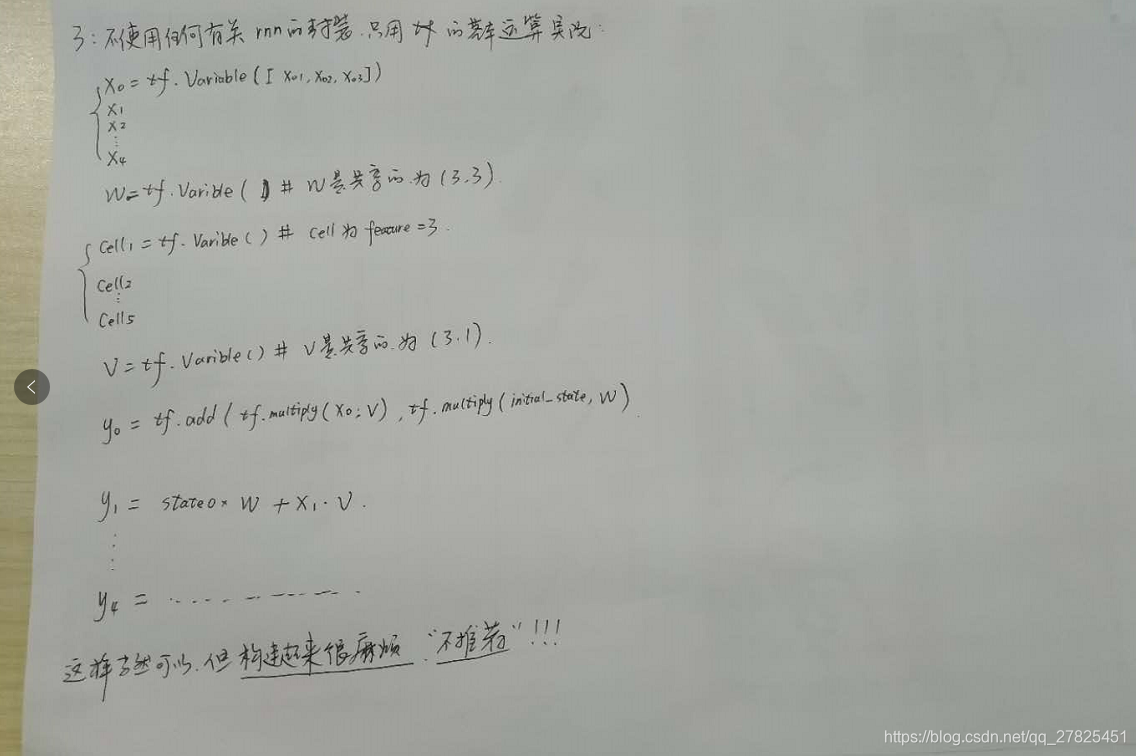 3: 不使用任何有关 rnn 的封装.只用 tf 的基本运算实现:
X0 = tf.Variable([X01, X02, X03])
X1
X2
⋮
X4
W = tf.Varible( ) # W是共享的.为 (3.3).
Cell1 = tf. Varible ( ) # cell 为 feature = 3.
Cell2
⋮
Cell5
V = tf. Varible( ) # V是共享的.为 (3.1).
y0 = tf.add( tf.multiply(X0, V), tf.multiply(initial_state, W)
y1 = state0 × W + X1 · V.
⋮
y4 = . - - - - - - - - - .
这样当然可以.但构建起来很麻烦."不推荐"!!!
https://blog.csdn.net/qq_27825451